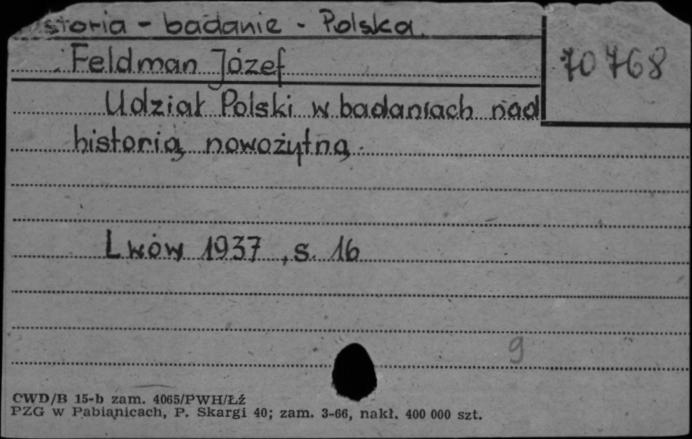 Historia - badanie - Polska.
Feldman Józef
70768
Udział Polski w badaniach nad
historią nowożytną.
Lwów 1937, s. 16
9
CWD/B 15-b zam. 4065/PWH/Łź
PZG w Pabianicach, P. Skargi 40; zam. 3-66, nakł. 400 000 szt.